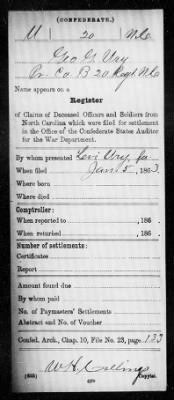 (CONFEDERATE.)
U 20 N.C.
Geo G. Ury
Pr. Co. B 20 Regt N.C.
Name appears on a
Register
of Claims of Deceased Officers and Soldiers from
North Carolina which were filed for settlement
in the Office of the Confederate States Auditor
for the War Department.
By whom presented Levi Ury, fa.
When filed Jan 5, 1863.
Where born
Where died
Comptroller:
When reported to , 186 .
When returned , 186 .
Number of settlements:
Certificates
Report
Amount found due
By whom paid
No. of Paymasters' Settlements
Abstract and No. of Voucher
Confed. Arch., Chap. 10, File No. 23, page 133
W. H. Collins
Copyist.